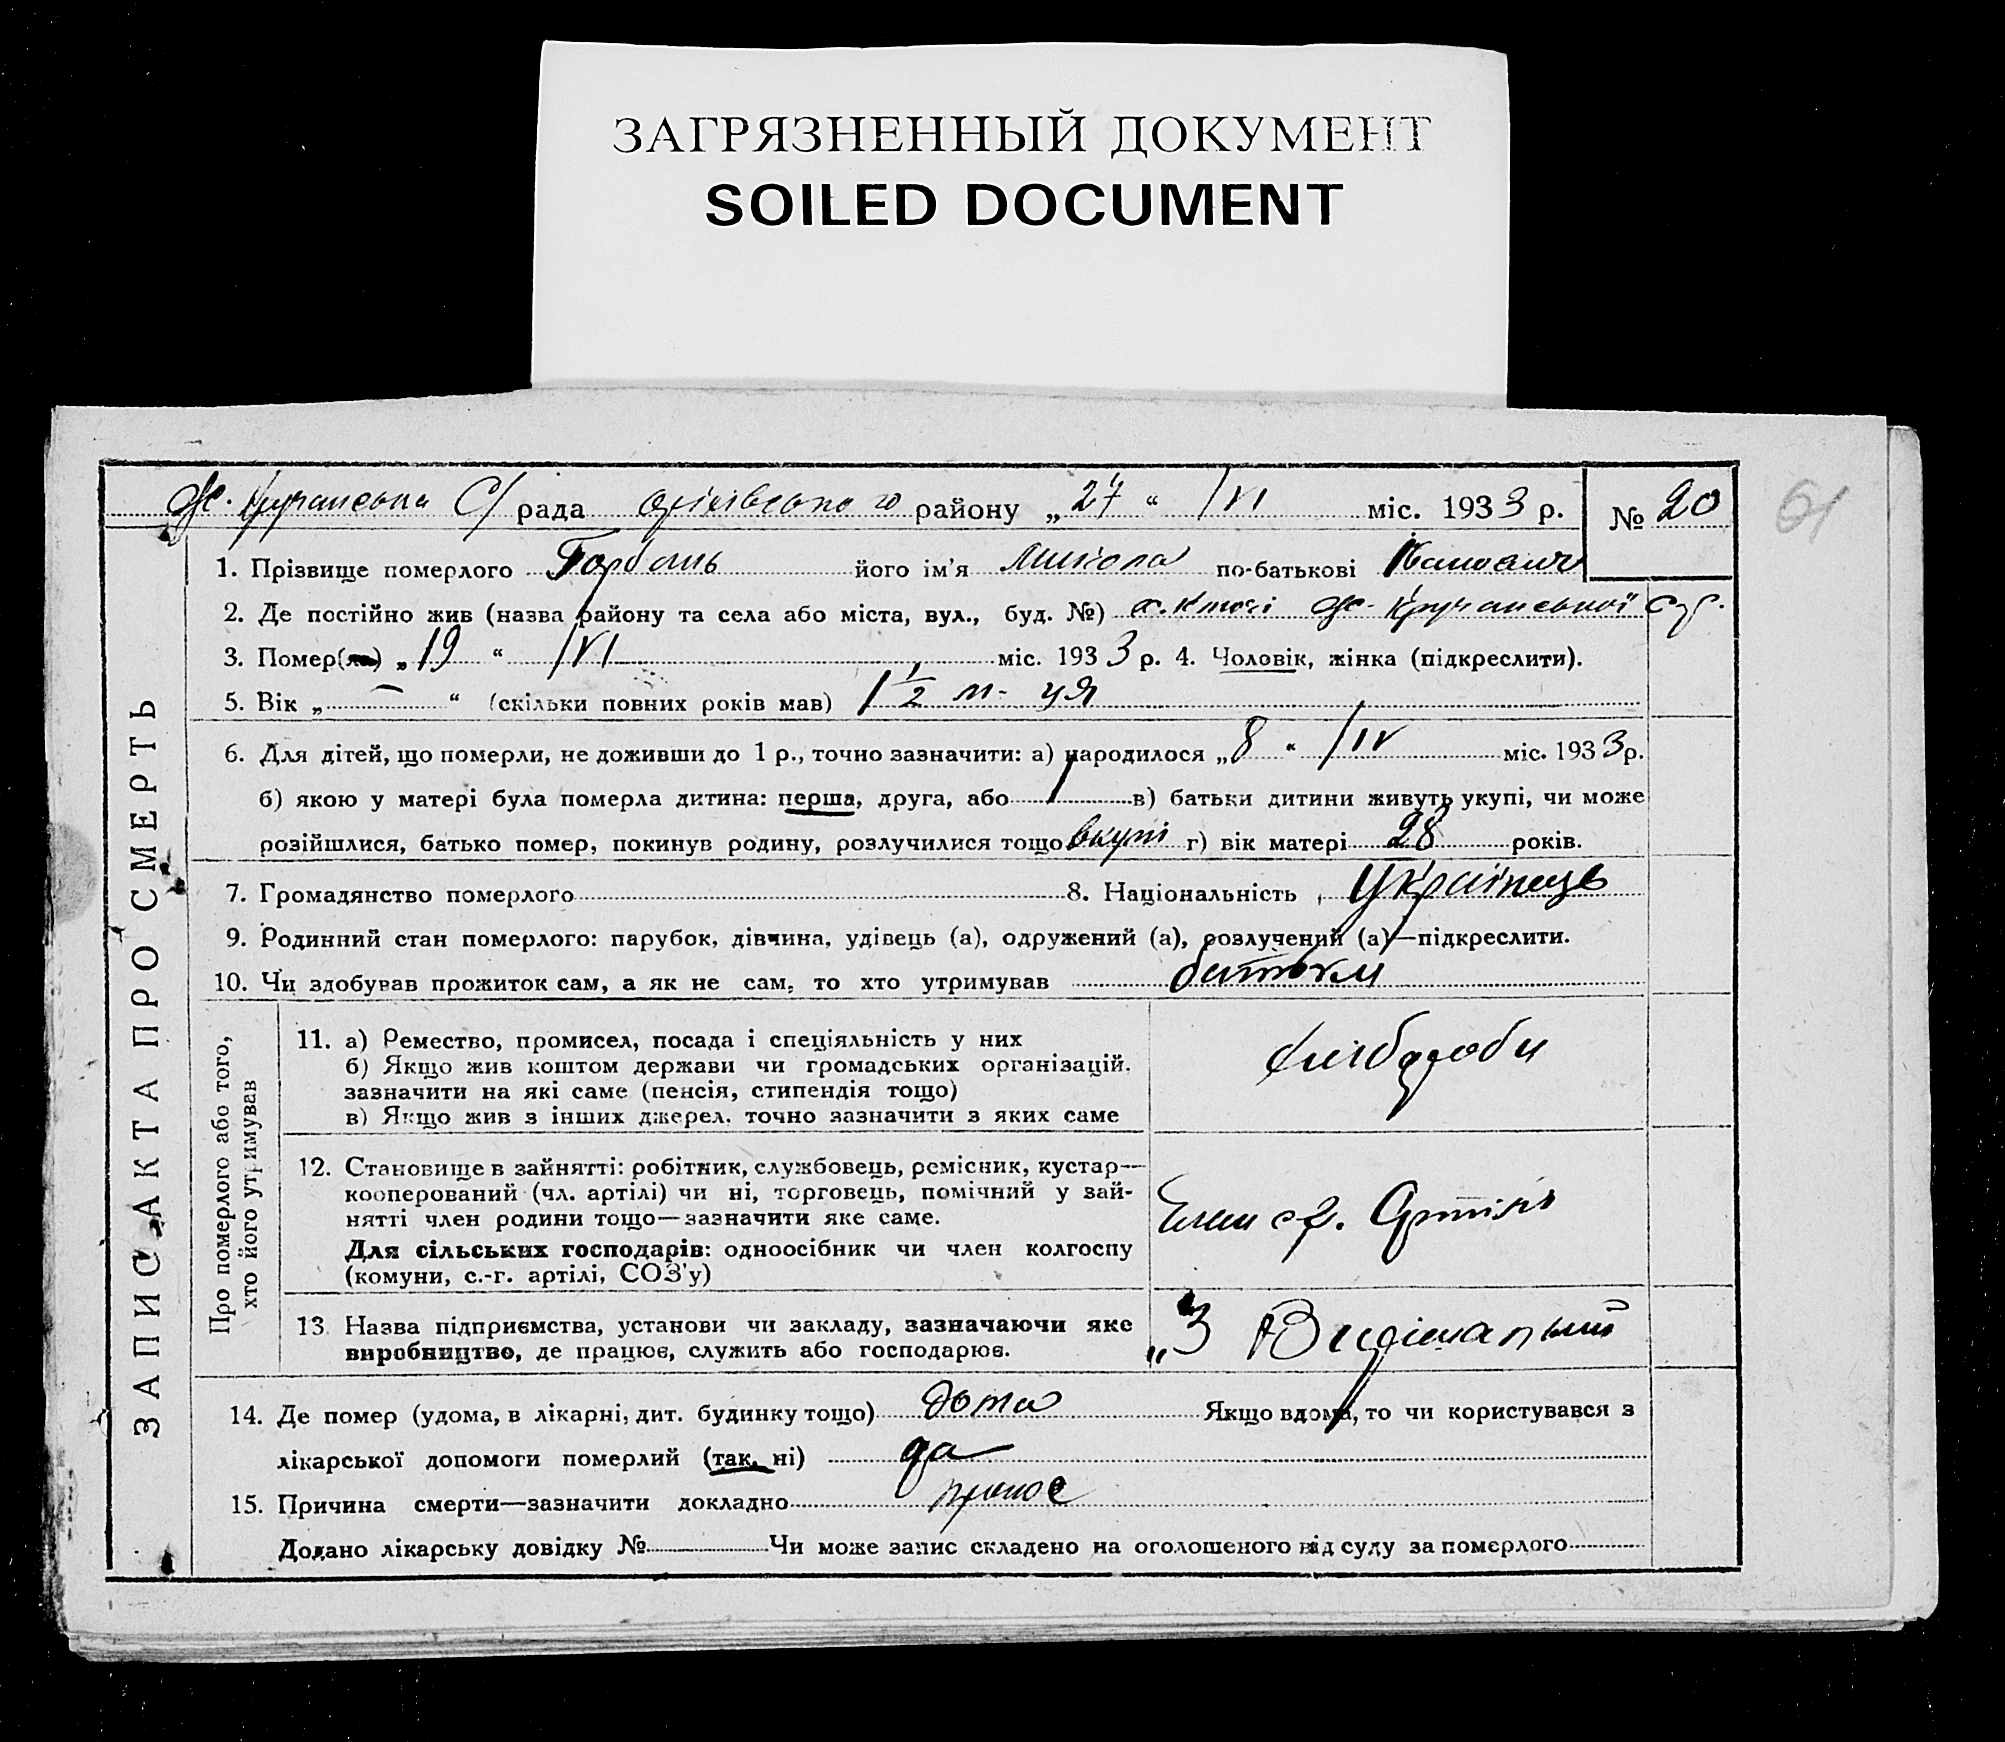 ЗАГРЯЗНЕННЫЙ ДОКУМЕНТ
SOILED DOCUMENT
С/ рада району „27“ /VI міс. 1933 р. № 20
61
1. Прізвище померлого Горбань його ім'я Микола по-батькові Іванович
2. Де постійно жив (назва району та села або міста, вул., буд. №)
3. Помер(ла) „19“ /VI міс. 1933 р. 4. Чоловік, жінка (підкреслити).
5. Вік „—“ (скільки повних років мав) 1 1/2 м-ця
6. Для дітей, що померли, не доживши до 1 р., точно зазначити: а) народилося „8“ /IV міс. 1933 р.
б) якою у матері була померла дитина: перша, друга, або в) батьки дитини живуть укупі, чи може
розійшлися, батько помер, покинув родину, розлучилися тощо вкупі г) вік матері 28 років.
7. Громадянство померлого 8. Національність Українець
9. Родинний стан померлого: парубок, дівчина, удівець (а), одружений (а), розлучений (а)—підкреслити.
10. Чи здобував прожиток сам, а як не сам, то хто утримував батьки
ЗАПИС АКТА ПРО СМЕРТЬ
Про померлого або того,
хто його утримував
11. а) Ремество, промисел, посада і спеціяльність у них
б) Якщо жив коштом держави чи громадських організацій,
зазначити на які саме (пенсія, стипендія тощо)
в) Якщо жив з інших джерел, точно зазначити з яких саме
хлібороби
12. Становище в зайнятті: робітник, службовець, ремісник, кустар—
кооперований (чл. артілі) чи ні, торговець, помічний у зай-
нятті член родини тощо—зазначити яке саме.
Для сільських господарів: одноосібник чи член колгоспу
(комуни, с.-г. артілі, СОЗ'у)
Член с.г. Артілі
13. Назва підприємства, установи чи закладу, зазначаючи яке
виробництво, де працює, служить або господарює.
„3
14. Де помер (удома, в лікарні, дит. будинку тощо) дома Якщо вдома, то чи користувався з
лікарської допомоги померлий (так, ні) да
15. Причина смерти—зазначити докладно пронос
Додано лікарську довідку № Чи може запис складено на оголошеного від суду за померлого